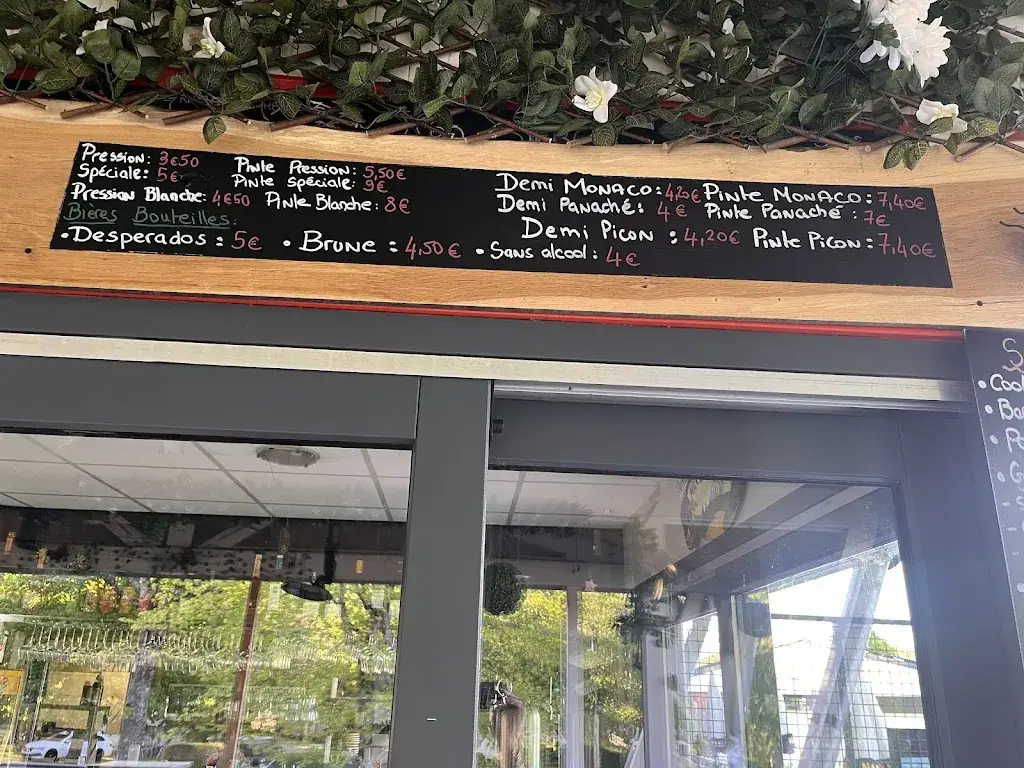 Pression: 3€50 Pinte Pression: 5,50€
Spéciale: 5€ Pinte Spéciale: 9€
Pression Blanche: 4€50 Pinte Blanche: 8€
Bières Bouteilles:
•Desperados: 5€ •Brune: 4,50€ •Sans alcool: 4€
Demi Monaco: 4,20€ Pinte Monaco: 7,40€
Demi Panaché: 4€ Pinte Panaché: 7€
Demi Picon: 4,20€ Pinte Picon: 7,40€